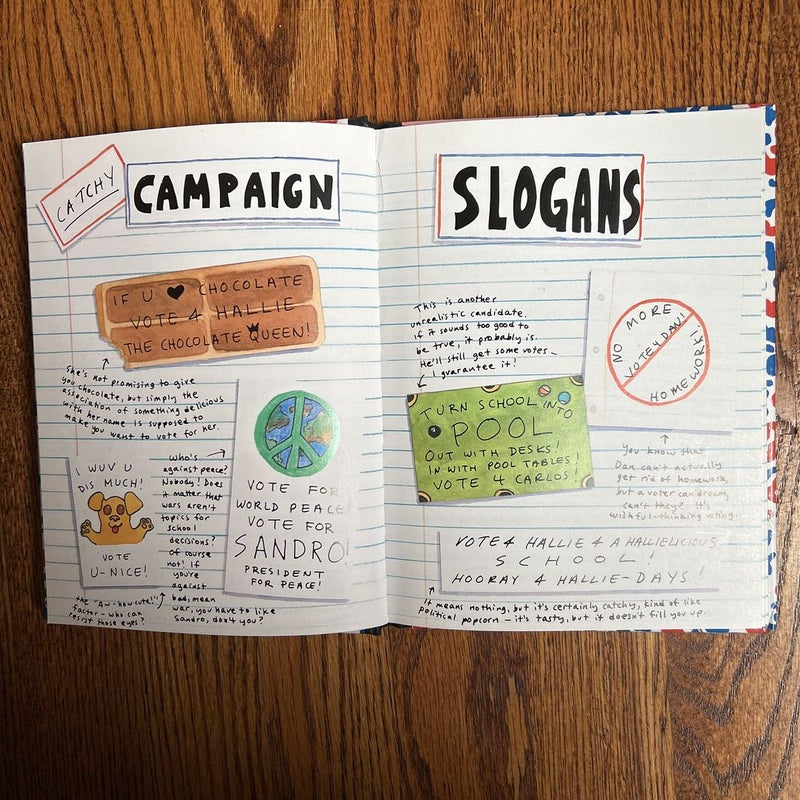 CATCHY
CAMPAIGN
IF U ♥ CHOCOLATE
VOTE 4 HALLIE
THE CHOCOLATE QUEEN!
She's not promising to give
you chocolate, but simply the
association of something delicious
with her name is supposed to
make you want to vote for her.
I WUV U
DIS MUCH!
VOTE
U-NICE!
the "Aw-how cute!"
factor - who can
resist those eyes?
Who's
against peace?
Nobody! Does
it matter that
wars aren't
topics for
school
decisions?
Of course
not! If
you're
against
bad, mean
war, you have to like
Sandro, don't you?
VOTE FOR
WORLD PEACE!
VOTE FOR
SANDRO!
PRESIDENT
FOR PEACE!
SLOGANS
This is another
unrealistic candidate.
If it sounds too good to
be true, it probably is.
He'll still get some votes -
I guarantee it!
TURN SCHOOL INTO
POOL
OUT WITH DESKS!
IN WITH POOL TABLES!
VOTE 4 CARLOS!
NO MORE
VOTE 4 DAN!
HOMEWORK!
You know that
Dan can't actually
get rid of homework,
but a voter can dream,
can't they? It's
wishful-thinking voting.
VOTE 4 HALLIE 4 A HALLIELICIOUS
SCHOOL!
HOORAY 4 HALLIE-DAYS!
It means nothing, but it's certainly catchy, kind of like
political popcorn - it's tasty, but it doesn't fill you up.